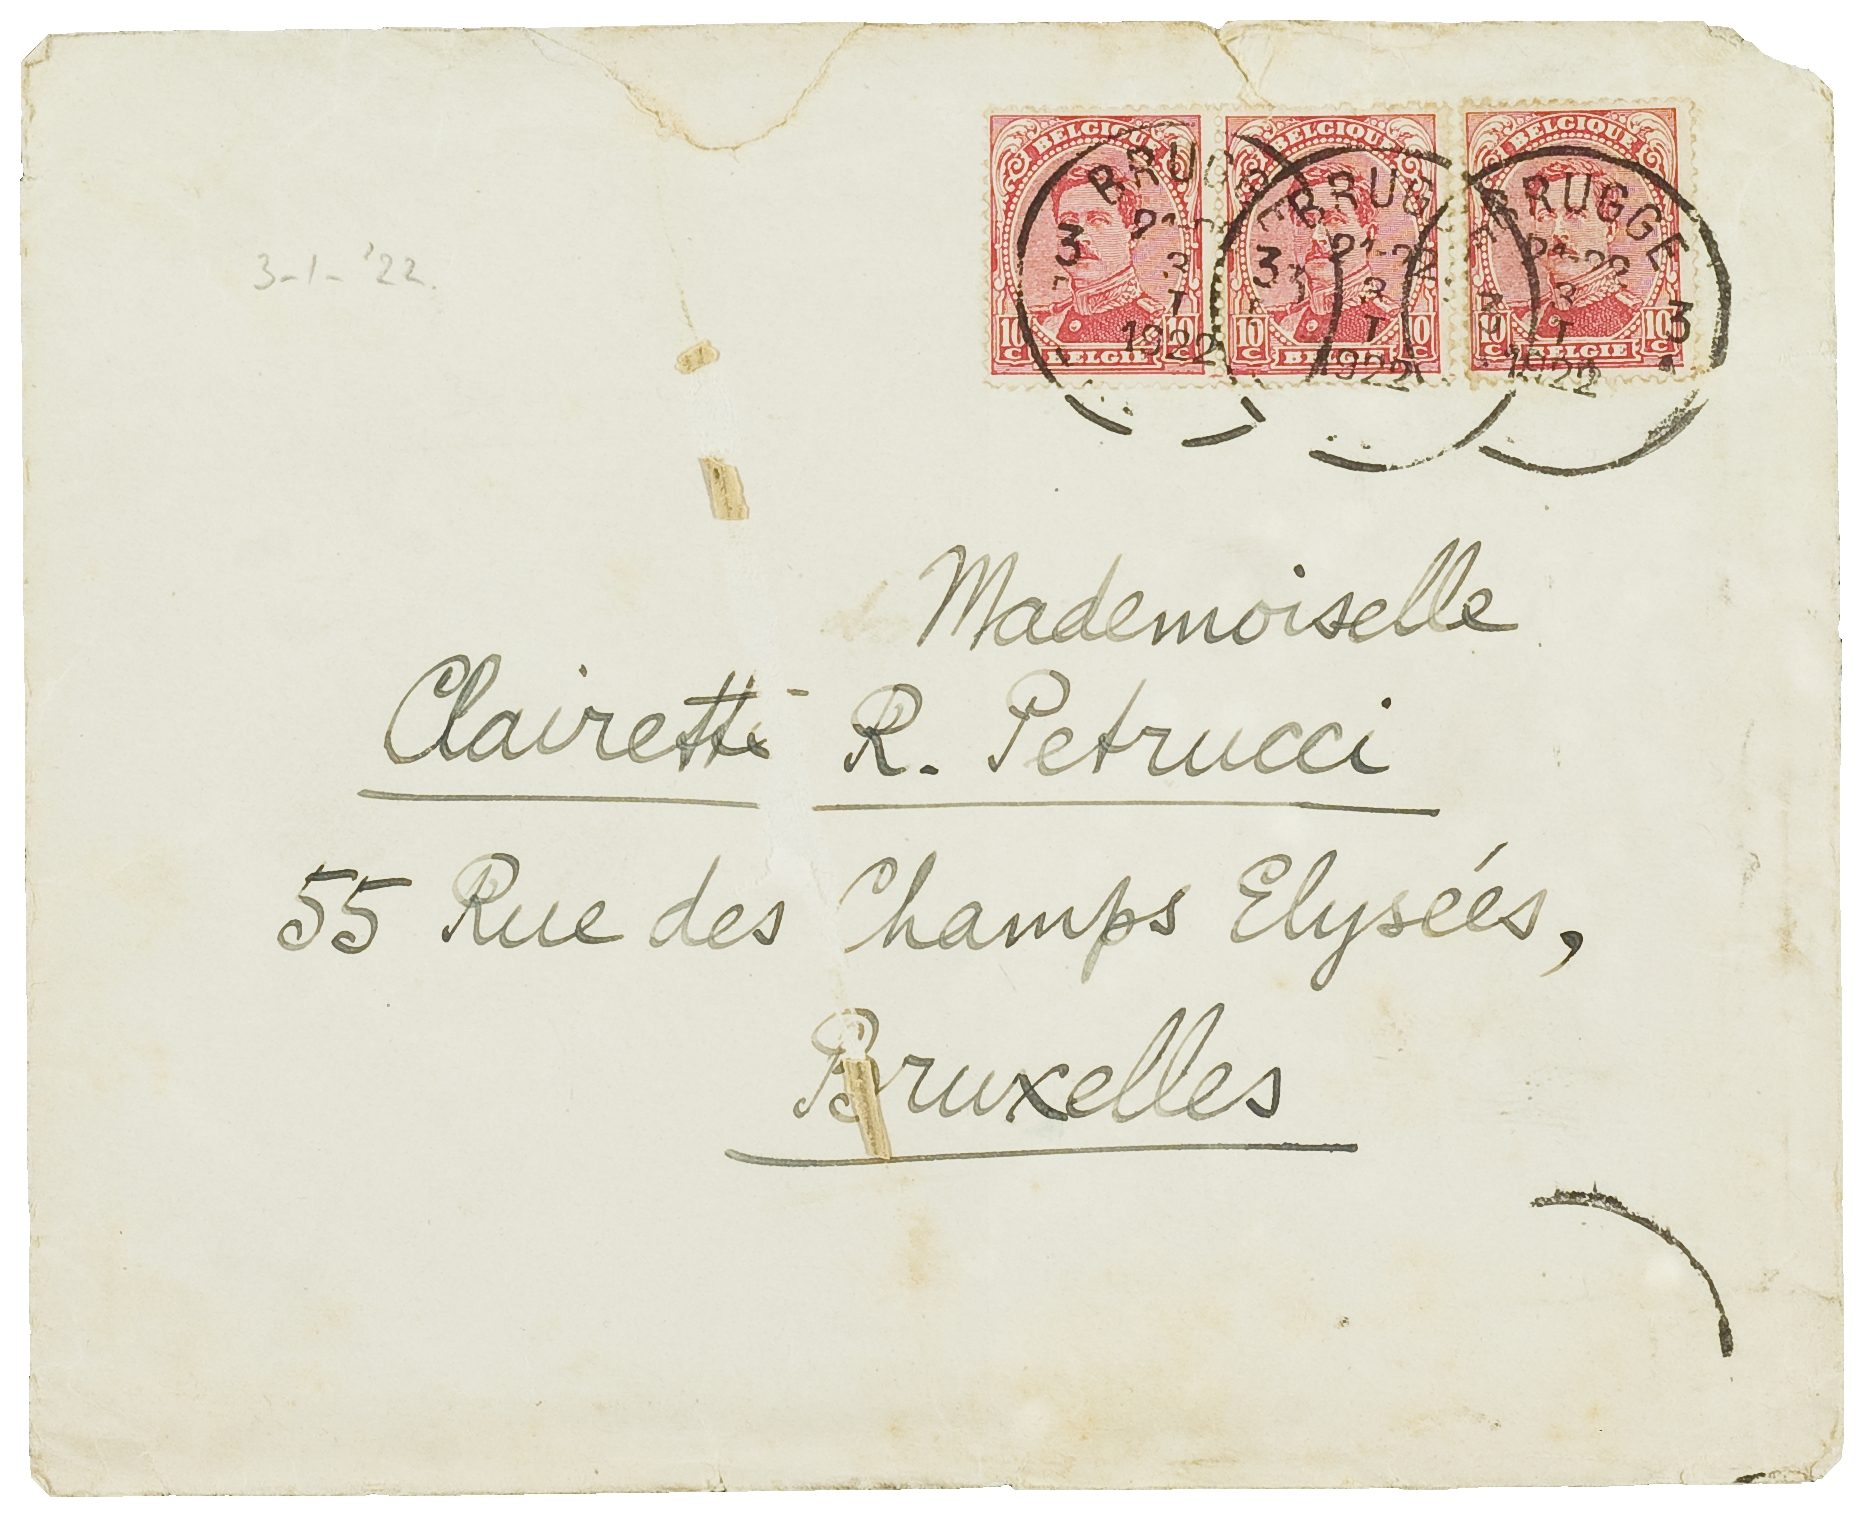 3-1-'22.
BELGIQUE BELGIQUE BELGIQUE
10 C BELGIË 10 C 10 C BELGIË 10 C 10 C BELGIË 10 C
BRUGGE BRUGGE BRUGGE
21-22 21-22 21-22
3 3 3 3 3 3
I I I
1922 1922 1922
Mademoiselle
Clairette R. Petrucci
55 Rue des Champs Elysées,
Bruxelles